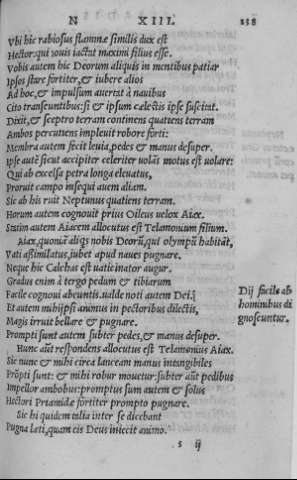 N XIII. 238
Vbi hic rabiosus flammæ similis dux est
Hector: qui Iouis iactat maximi filius esse.
Vobis autem hic Deorum aliquis in mentibus patiar
Ipsos stare fortiter, & iubere alios
Ad hoc, & impulsum auerteret à nauibus
Cito transeuntibus: si & ipsum cælestis ipse suscitat.
Dixit, & sceptro terram continens quatiens terram
Ambos percutiens impleuit robore forti:
Membra autem fecit leuia, pedes & manus desuper.
Ipse autē sicut accipiter celeriter volās motus est uolare:
Qui ab excelsa petra longa eleuatus,
Proruit campo insequi auem aliam.
Sic ab his ruit Neptunus quatiens terram.
Horum autem cognouit prius Oileus velox Aiax.
Statim autem Aiacem allocutus est Telamonium filium.
Aiax, quoniā aliqs nobis Deorū, qui olympū habitāt,
Vati assimilatus, iubet apud naues pugnare.
Neque hic Calchas est uaticinator augur.
Gradus enim à tergo pedum & tibiarum
Facile cognoui abeuntis. ualde noti autem Dei.
Et autem mihi ipsi animus in pectoribus dilectis,
Magis irruit bellare & pugnare.
Prompti sunt autem subter pedes, & manus desuper.
Hunc aūt respondens allocutus est Telamonius Aiax.
Sic nunc & mihi circa lanceam manus intangibiles
Prōpti sunt: & mihi robur mouetur: subter aūt pedibus
Impellor ambobus: promptus sum autem & solus
Hectori Priamidæ fortiter prompto pugnare.
Sic hi quidem talia inter se dicebant
Pugna læti, quam eis Deus iniecit animo.
Dij facile ab
hominibus di
gnoscuntur.
s ij